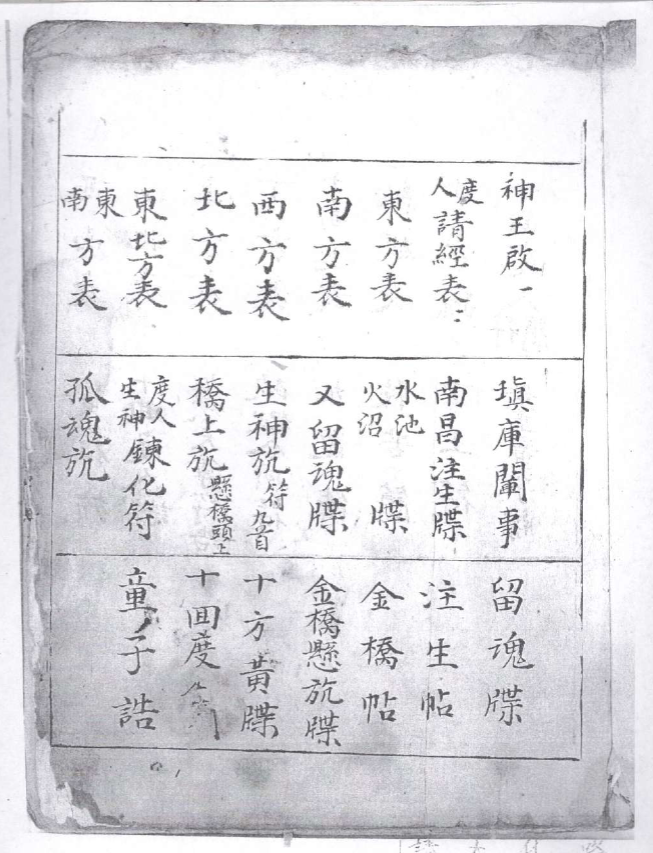 神王啟一
度人請經表二
東方表
南方表
西方表
北方表
東北方表
東南方表
瑱庫關事
南昌注生牒
水池火沼牒
又留魂牒
生神旊符九首
橋上旊懸橋頭上
度人生神鍊化符
孤魂旊
留魂牒
注生帖
金橋帖
金橋懸旊牒
十方黃牒
十回度
童子誥